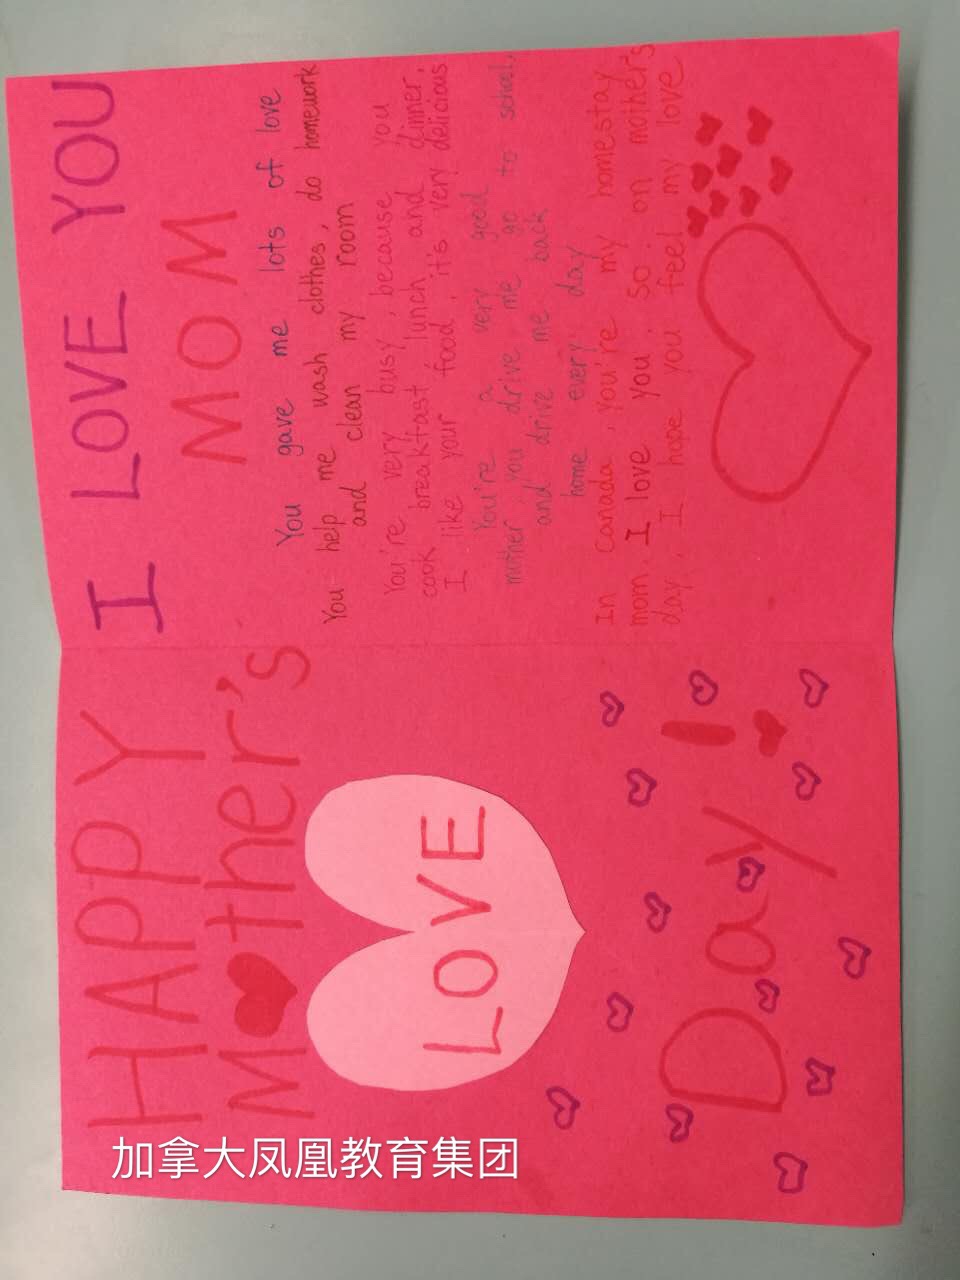 HAPPY
Mother's
LOVE
Day!
I LOVE YOU
MOM
You gave me lots of love
You help me wash clothes, do homework
and clean my room
You're very busy, because you
cook breakfast lunch and dinner,
I like your food, it's very delicious
You're a very good
mother you drive me go to school,
and drive me back
home every day
In Canada, you're my homestay
mom. I love you. So on mothers
day, I hope you feel my love
加拿大凤凰教育集团